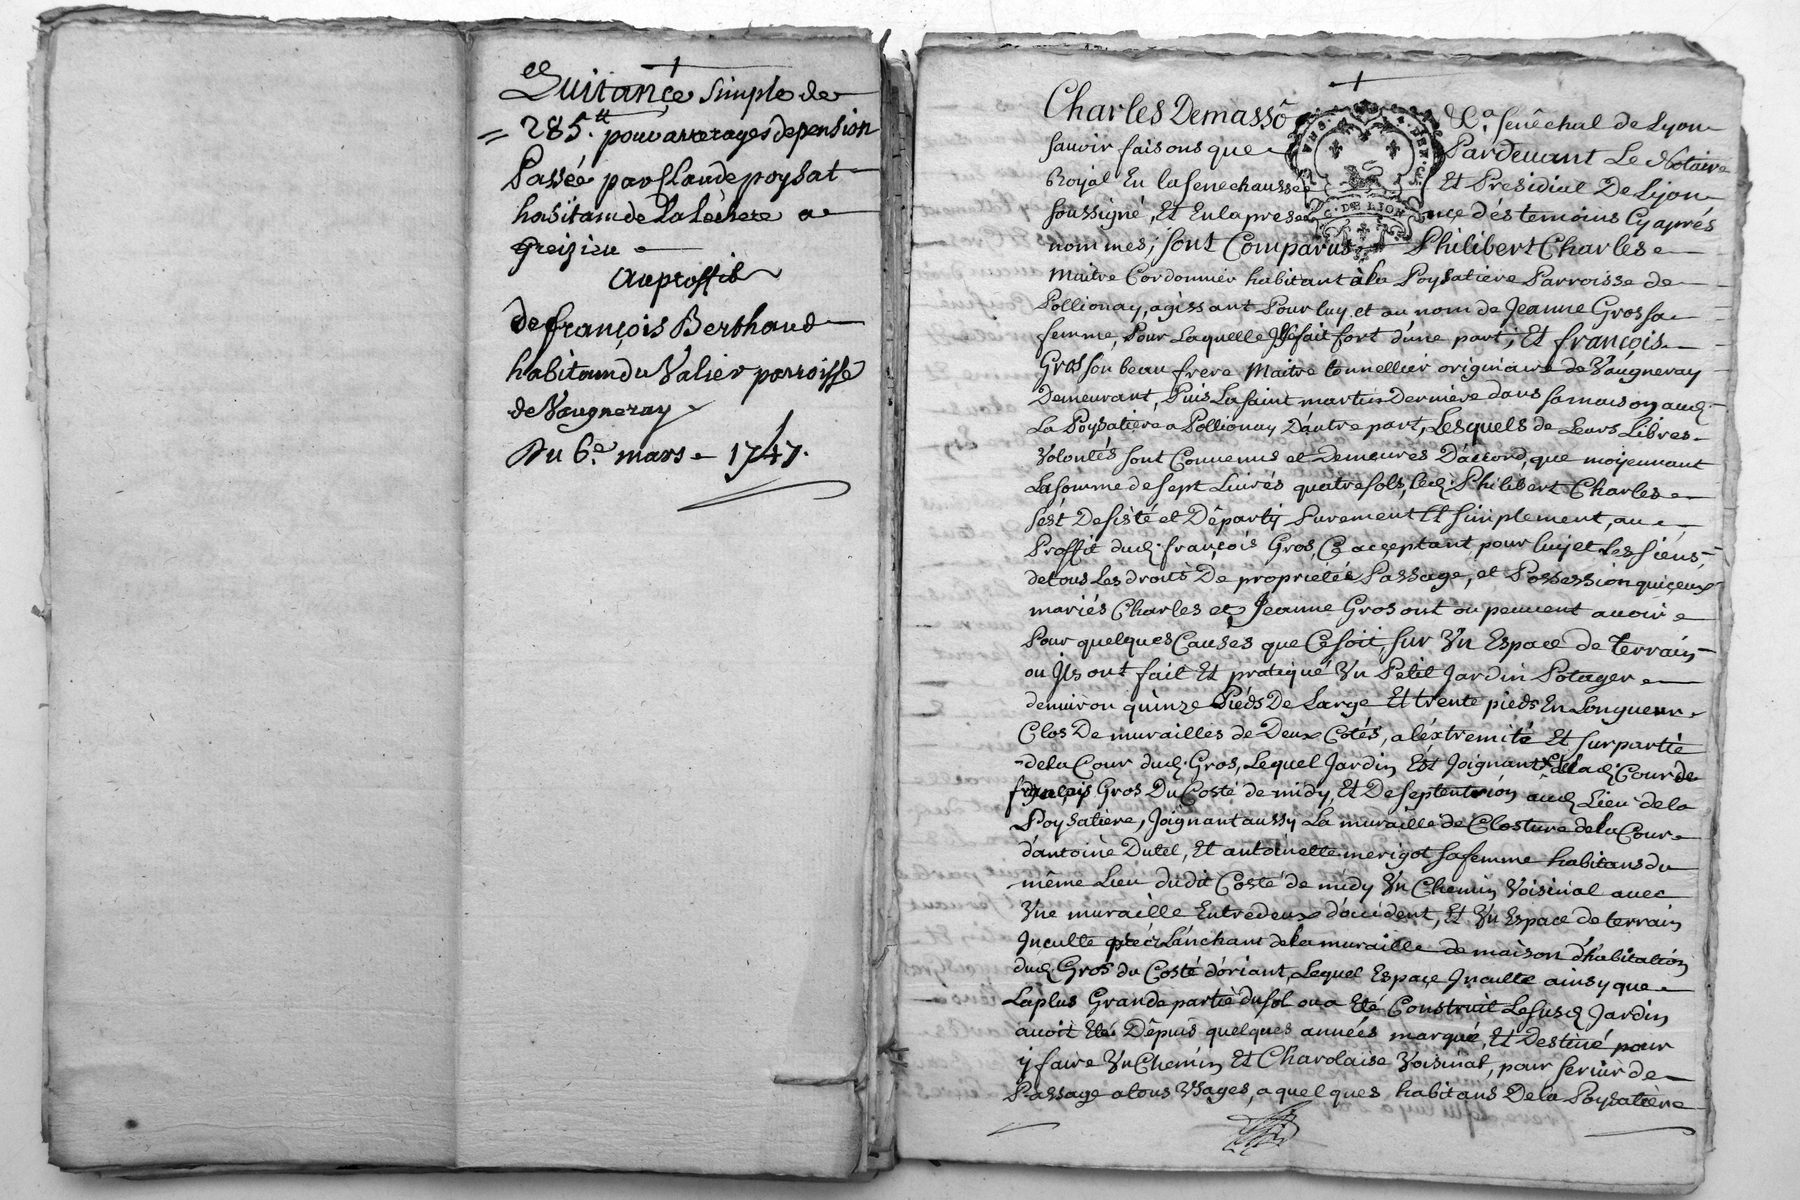 Quitance simple de
= 285.tt pour arrerages de pension
Passée par Claude poysat
habitant de La Léchere a
Greizieu
Au proffit
de françois Berthaud
habitant du Valier parroisse
de Vaugneray
Du 6.e mars 1747.
Charles Demassô &c.a senêchal de Lyon
savoir faisons que Pardevant Le Notaire
Royal En la senechaussée Et Presidial De Lyon
soussigné, Et En la presence dés temoins Cy aprés
nommés; sont Comparus Philibert Charles
Maitre Cordonnier habitant à la Poysatiere Parroisse de
Pollionay, agissant Pour luy et au nom de Jeanne Gros sa
femme, Pour Laquelle Il se fait fort d'une part; Et françois
Gros son beaufrere Maitre tonnellier originaire de Vaugneray
Demeurant, Puis La saint martin Derniere dans sa maison aud.
La Poysatiere a Pollionay D'autre part, Lesquels de Leurs Libres
Volontés sont Convenus et Demeurés D'accord, que moyennant
La somme de sept Livrés quatre sols, led. Philibert Charles
s'est Desisté et Départy Purement Et simplement, au
Proffit dud. françois Gros, Cy acceptant pour luy et Les siens,
de tous Les droits De propriétés Passage, et Possession qui ceux
mariés Charles et Jeanne Gros ont ou peuvent avoir
Pour quelques Causes que Ce soit, sur Vn Espace de terrain
ou Ils ont fait Et pratiqué Vn Petit Jardin Potager
d'environ quinze Pieds De Large Et trente pieds En Longueur
Clos De murailles de Deux Cotés, a l'éxtremité Et sur partie
de la Cour dud. Gros, Lequel Jardin Est Joignant lad. Cour de
françois Gros Du Costé de midy, Et De septentrion aud. Lieu de la
Poysatiere, Joignant aussy La muraille de Closture de la Cour
d'antoine Dutel, Et antoinette merigot sa femme habitans du
même Lieu du dit Costé de midy Vn Chemin Voisinal avec
Vne muraille Entredeux d'occident, Et Vn Espace de terrain
Inculte de la muraille de maison d'habitation
dud. Gros du Costé d'oriant, Lequel Espace Inculte ainsy que
La plus Grande partie du sol ou a Eté Construit Le susd. Jardin
avoit Eté Dêpuis quelques années marqué, Et Destiné pour
y faire Vn Chemin Et Charolaise Voisinal, pour servir de
Passage a tous Vsages, a quelques habitans De la Poysatiere
G. DE LION